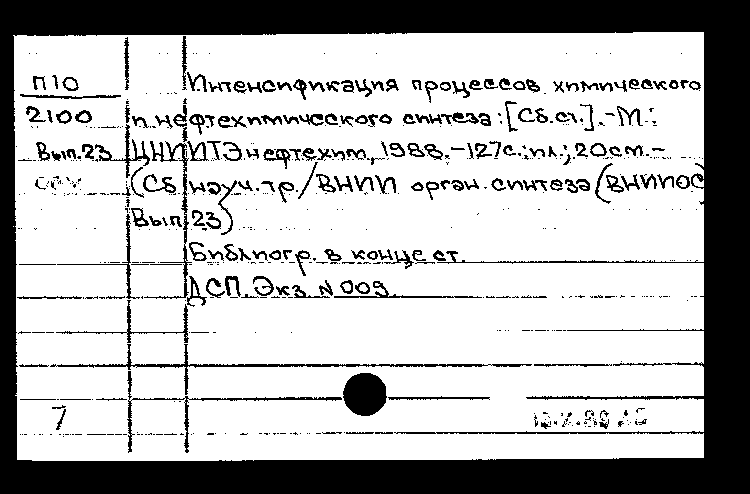 П10 Интенсификация процессов химического
2100 и нефтехимического синтеза: [Сб.ст.].-М.:
Вып.23 ЦНИИТЭнефтехим, 1988.-127с.:ил.; 20см.-
(Сб. науч. тр./ВНИИ орган. синтеза (ВНИИОС)
Вып. 23)
Библиогр. в конце ст.
ДСП. Экз. N 009.
7